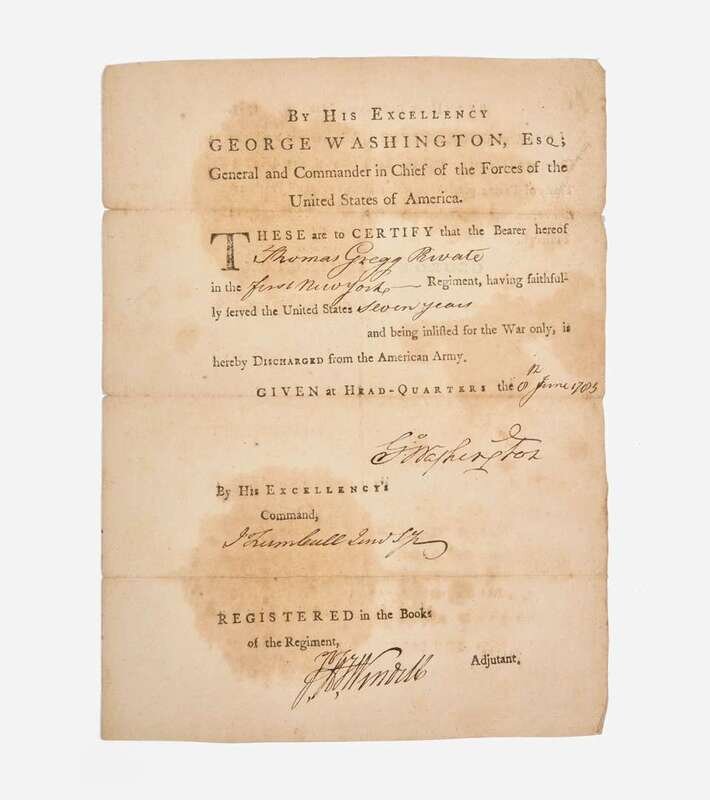 By His Excellency
GEORGE WASHINGTON, Esq;
General and Commander in Chief of the Forces of the
United States of America.
THESE are to CERTIFY that the Bearer hereof
Thomas Gregg Private
in the first New York Regiment, having faithful-
ly served the United States seven years
and being inlisted for the War only, is
hereby Discharged from the American Army.
GIVEN at Head-Quarters the 8th June 1783
Go Washington
By His Excellency's
Command,
J Trumbull Jund Sy
REGISTERED in the Books
of the Regiment,
Wendell
Adjutant.